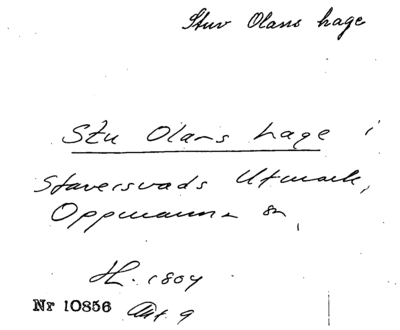 Stuv Olans hage
Stu Olans hage i
Staversvads Utmark,
Oppmanna sn,
H. 1804
Nr 10856 Akt. 9